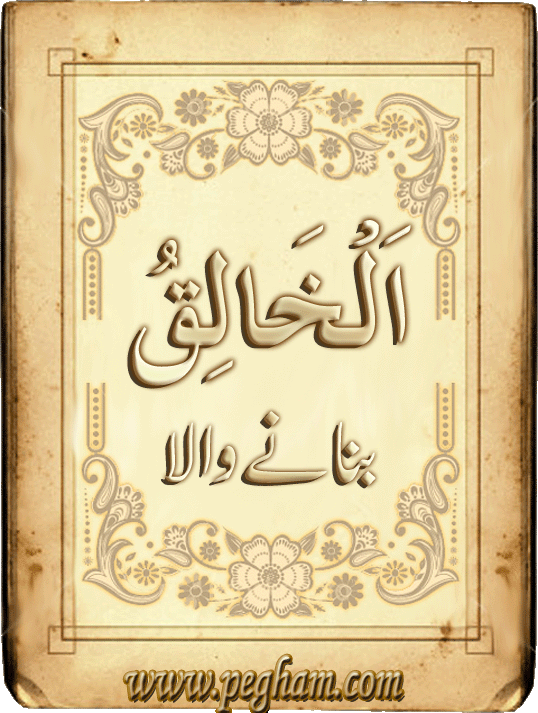 اَلْخَالِقُ
بنانے والا
www.pegham.com